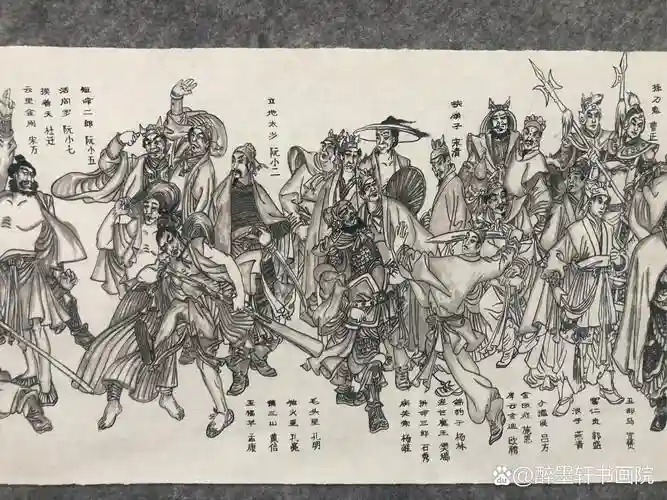 操刀鬼 曹正
铁扇子 宋清
立地太岁 阮小二
短命二郎 阮小五
活阎罗 阮小七
摸着天 杜迁
云里金刚 宋万
丑郡马 宣赞
赛仁贵 郭盛
浪子 燕青
小温侯 吕方
金眼彪 施恩
摩云金翅 欧鹏
锦豹子 杨林
混世魔王 樊瑞
拼命三郎 石秀
病关索 杨雄
毛头星 孔明
独火星 孔亮
镇三山 黄信
玉幡竿 孟康
@醉墨轩书画院